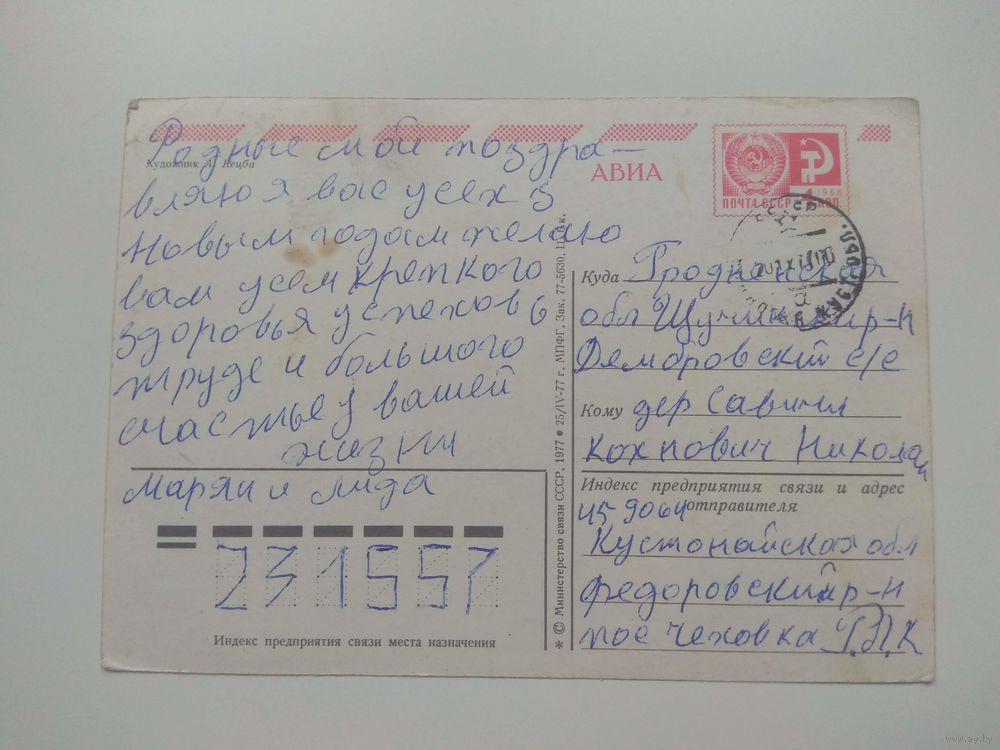 Родные мои поздра-
вляю я вас усех з
Новым годом желаю
вам усем крепкого
здоровья успехов в
труде и большого
счастье у вашей
жизни
Марян и Лида
Художник А. Кецба
АВИА
ПОЧТА СССР 4 КОП.
1966
Куда Гродненская
обл Щучинский р-н
Дембровский с/с
Кому дер Савичи
Кохнович Николай
Индекс предприятия связи и адрес
отправителя
459064
Кустонайская обл
Федоровский р-н
пос Чеховка Р.П.К
231557
Индекс предприятия связи места назначения
* © Министерство связи СССР, 1977 • 25/IV-77 г. МПФГ. Зак. 77-5630. Ц. 6 к.
www.ay.by